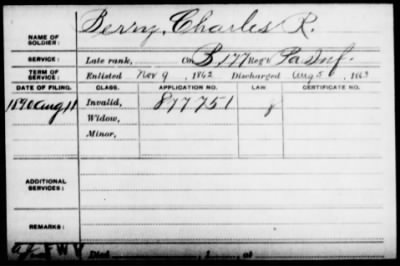 NAME OF SOLDIER: Berry, Charles R.
SERVICE: Late rank, Co. B, 177 Reg't Pa Inf.
TERM OF SERVICE: Enlisted Nov 9, 1862 Discharged Aug 5, 1863
DATE OF FILING. CLASS. APPLICATION NO. LAW CERTIFICATE NO.
1890 Aug 11 Invalid, 877751
Widow,
Minor,
ADDITIONAL SERVICES:
REMARKS:
Died , at